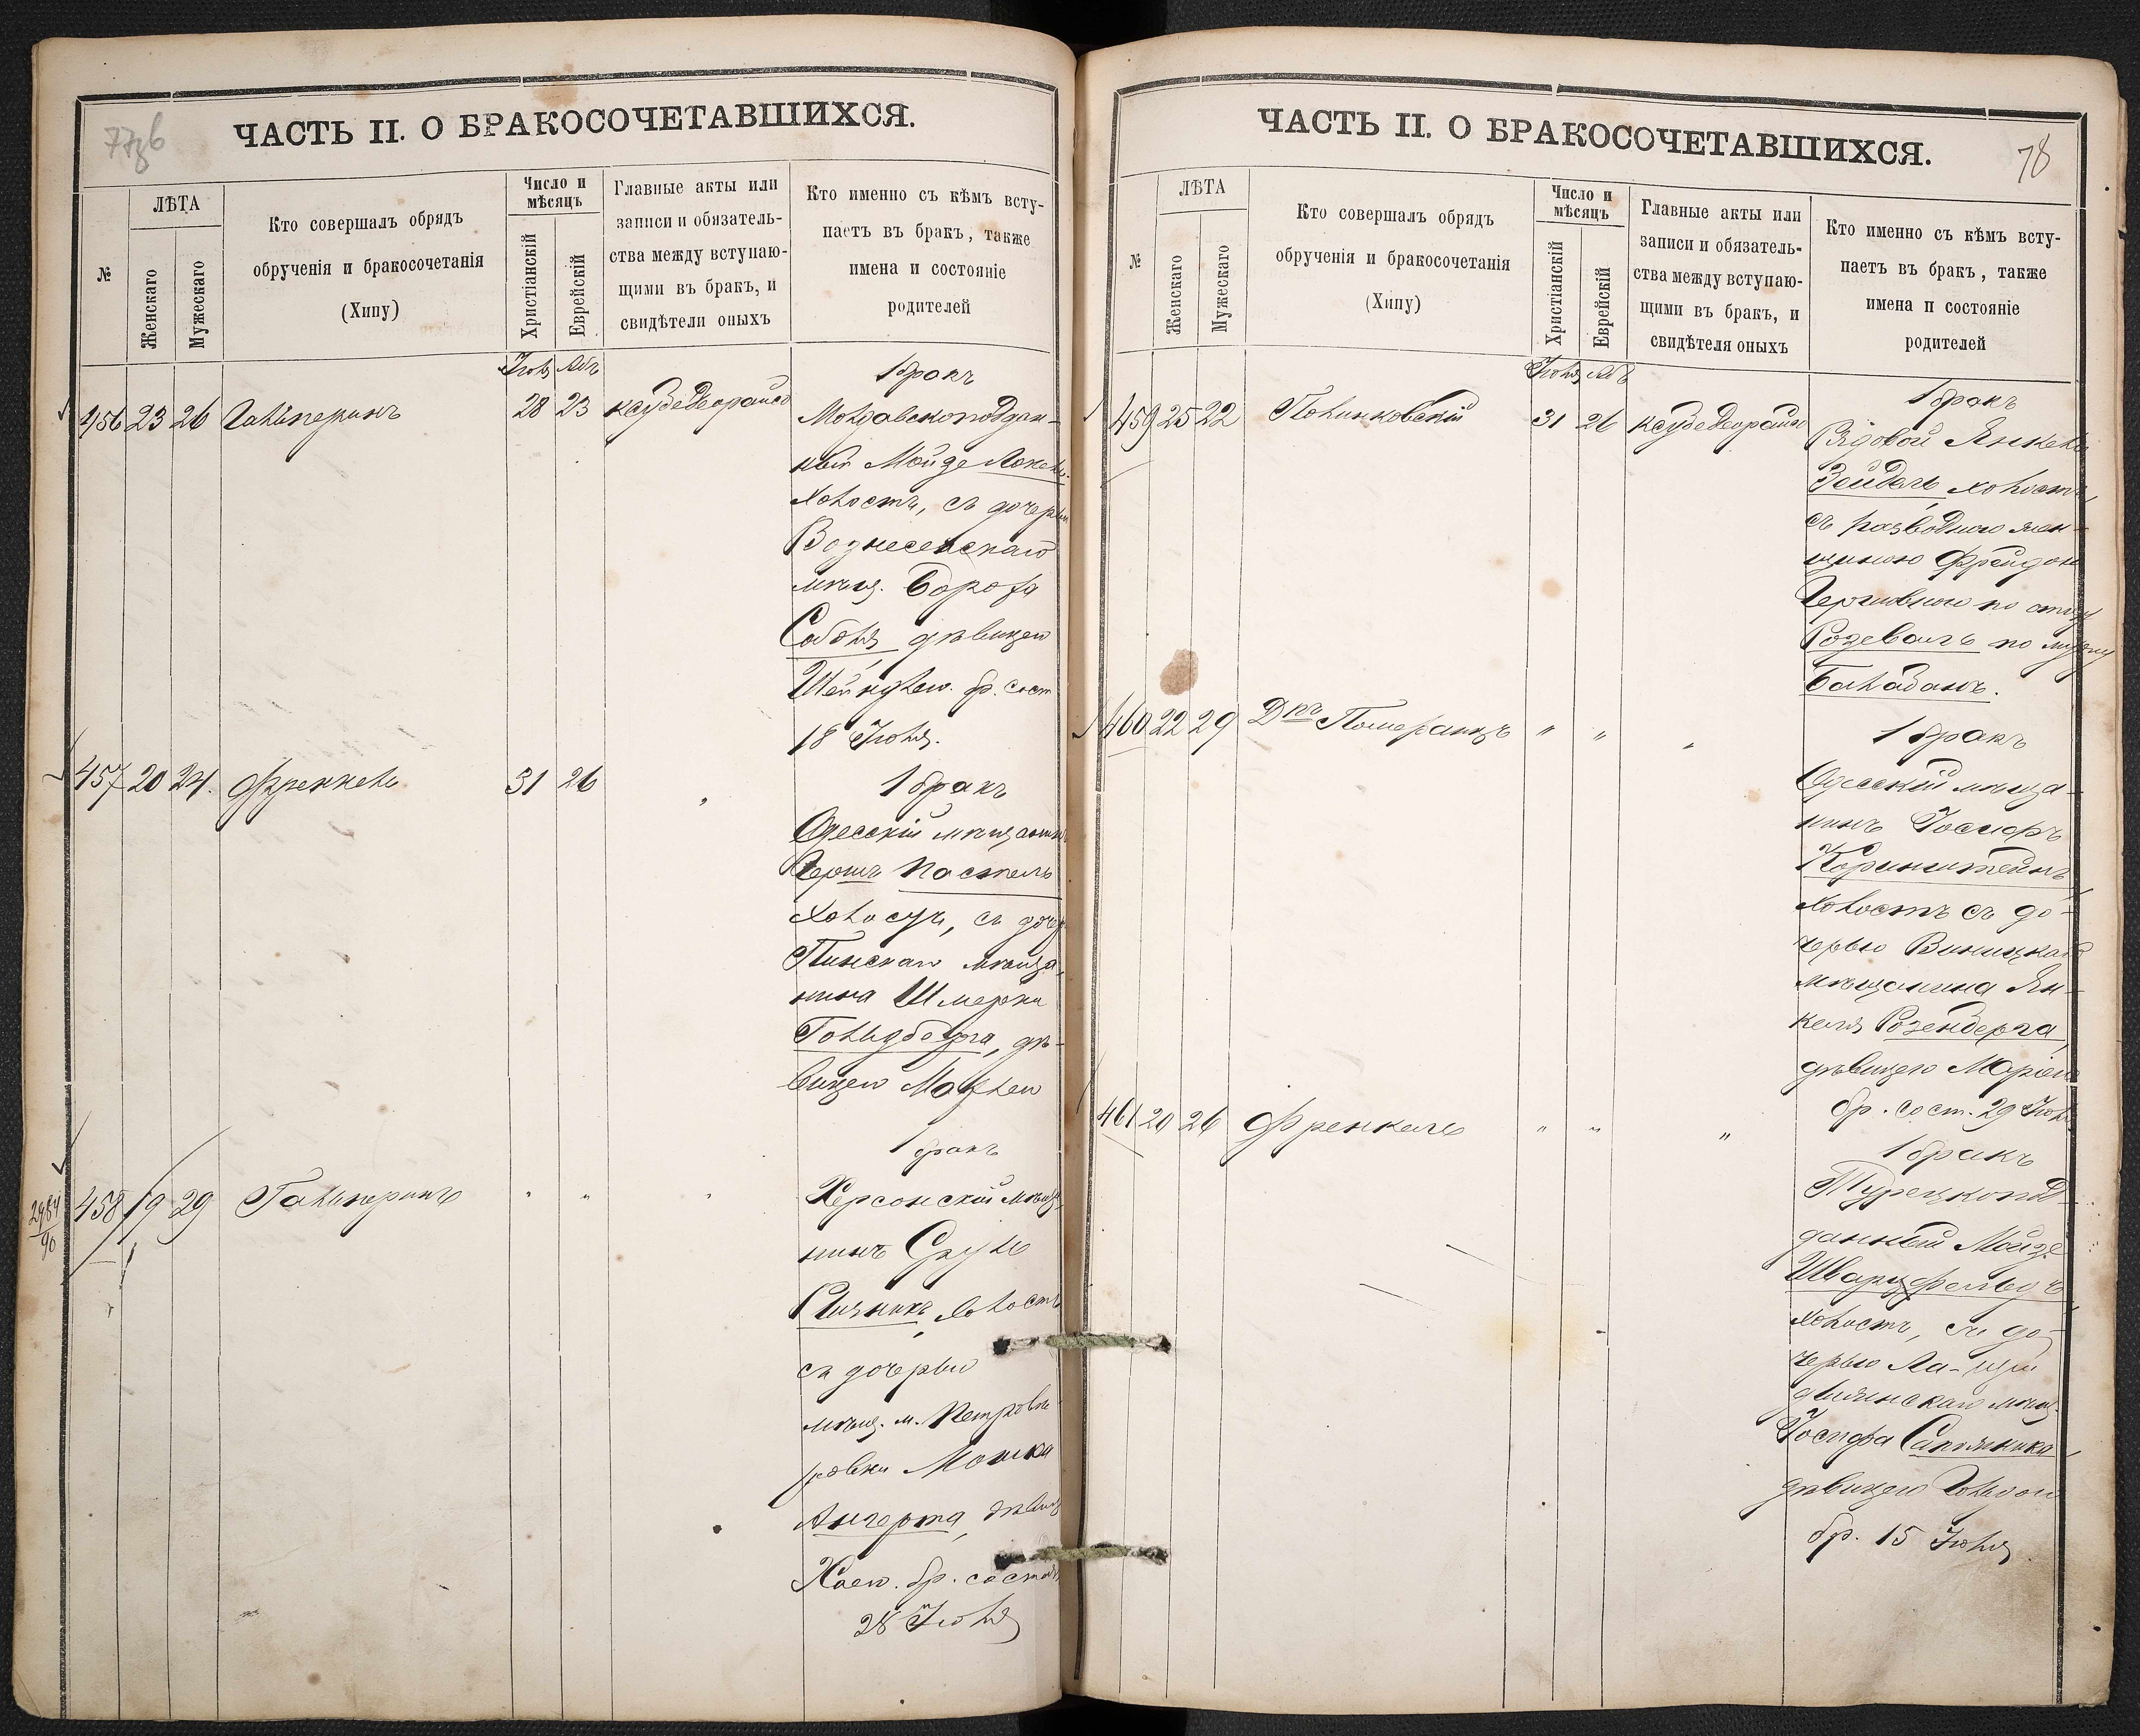 77об
ЧАСТЬ II. О БРАКОСОЧЕТАВШИХСЯ.
№
ЛѢТА
Женскаго
Мужескаго
Кто совершалъ обрядъ
обрученія и бракосочетанія
(Хипу)
Число и
мѣсяцъ
Христіанскій
Еврейскій
Главные акты или
записи и обязатель-
ства между вступаю-
щими въ бракъ, и
свидѣтели оныхъ
Кто именно съ кѣмъ всту-
паетъ въ бракъ, также
имена и состояніе
родителей
Іюль Абъ
1 бракъ
456 23 26 Гальперинъ 28 23 ксубедеорайсо
Молдавскоподдан-
ный Мойзе
Холостъ, съ дочерью
Вознесенскаго
мѣщ. Бороха
дѣвицею
Шейндлею. бр. сост
18 Іюля.
457 20 24. Френкель 31 26 „
1 бракъ
Одесскій мѣщанинъ
Гершъ Пастель
Холостъ, съ дочер
Пинскаго мѣща-
нина Шмерки
Гольдберга, дѣ-
вицею
1 бракъ
2984
90
458 19 29 Гальперинъ „ „ „
Херсонскій мѣща-
нинъ Сруль
холостъ
съ дочерью
мѣщ. м. Петровѣ
ровки Мошка
дѣвиц
Хаею. бр. состоял
28 Іюля
78
ЧАСТЬ II. О БРАКОСОЧЕТАВШИХСЯ.
№
ЛѢТА
Женскаго
Мужескаго
Кто совершалъ обрядъ
обрученія и бракосочетанія
(Хипу)
Число и
мѣсяцъ
Христіанскій
Еврейскій
Главные акты или
записи и обязатель-
ства между вступаю-
щими въ бракъ, и
свидѣтеля оныхъ
Кто именно съ кѣмъ всту-
паетъ въ бракъ, также
имена п состояніе
родителей
Іюля Абъ
1 бракъ
459 25 22 Полинковскій 31 26 ксубедеорайсо
Рядовой Янкель
Зейдель холостъ,
съ разводною жен-
щиною Фрейдою
по отцу
по мужу
Балабанъ.
460 22 29 Д-ръ Померанцъ „ „ „
1 бракъ
Одесскій мѣща-
нинъ Іосифъ
Коринштейнъ,
холостъ съ до-
черью Виницкаго
мѣщанина Ян-
келя Розенберга,
дѣвицею Маріею
бр. сост. 29 Іюля
461 20 26 Френкель „ „ „
1 бракъ
Турецкопод-
данный Мойзе
Шварцфельдъ,
холостъ, съ до-
черью
мѣщ.
Іосифа Сапожника,
дѣвицею Гольдою
бр. 15 Іюля.